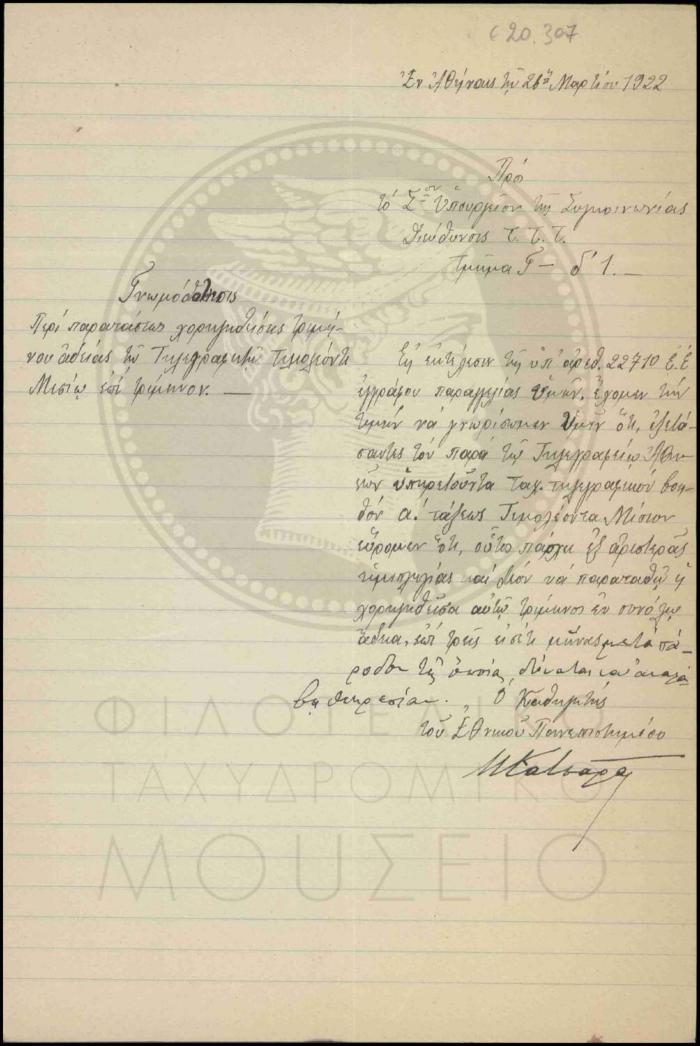 C 20.307
Ἐν Ἀθήναις τῇ 26ῃ Μαρτίου 1922
Πρὸς
τὸ Σ^ον Ὑπουργεῖον τῆς Συγκοινωνίας
Διεύθυνσις Τ. Τ. Τ.
Τμῆμα Γ – δ' 1. –
Γνωμοδότησις
Περὶ παρατάσεως χορηγηθείσης τριμή-
νου ἀδείας τῷ Τηλεγραφητῇ Τιμολέοντι
Μεσίῳ ἐπὶ τρίμηνον. –
Εἰς ἐκτέλεσιν τῆς ὑπ' ἀριθ. 22710 Ε.Ε
ἐγγράφου παραγγελίας Ὑμῶν, ἔχομεν τὴν
τιμὴν νὰ γνωρίσωμεν Ὑμῖν ὅτι, ἐξετά-
σαντες τὸν παρὰ τῷ Τηλεγραφείῳ Ἀθη-
νῶν ὑπηρετοῦντα ταχ. τηλεγραφικὸν βοη-
θὸν α' τάξεως Τιμολέοντα Μέσιον
εὕρομεν ὅτι, οὗτος πάσχει ἐξ ἀριστερᾶς
ἡμιπληγίας καὶ δέον νὰ παραταθῇ ἡ
χορηγηθεῖσα αὐτῷ τρίμηνος ἐν συνόλῳ
ἄδεια, ἐπὶ τρεῖς εἰσέτι μῆνας μετὰ πά-
ροδον τῆς ὁποίας δύναται ν' ἀναλά-
βῃ ὑπηρεσίαν. Ὁ Καθηγητὴς
τοῦ Ἐθνικοῦ Πανεπιστημίου
Μ Κατσαρᾶς
ΦΙΛΟΤΕΛΙΚΟ
ΤΑΧΥΔΡΟΜΙΚΟ
ΜΟΥΣΕΙΟ